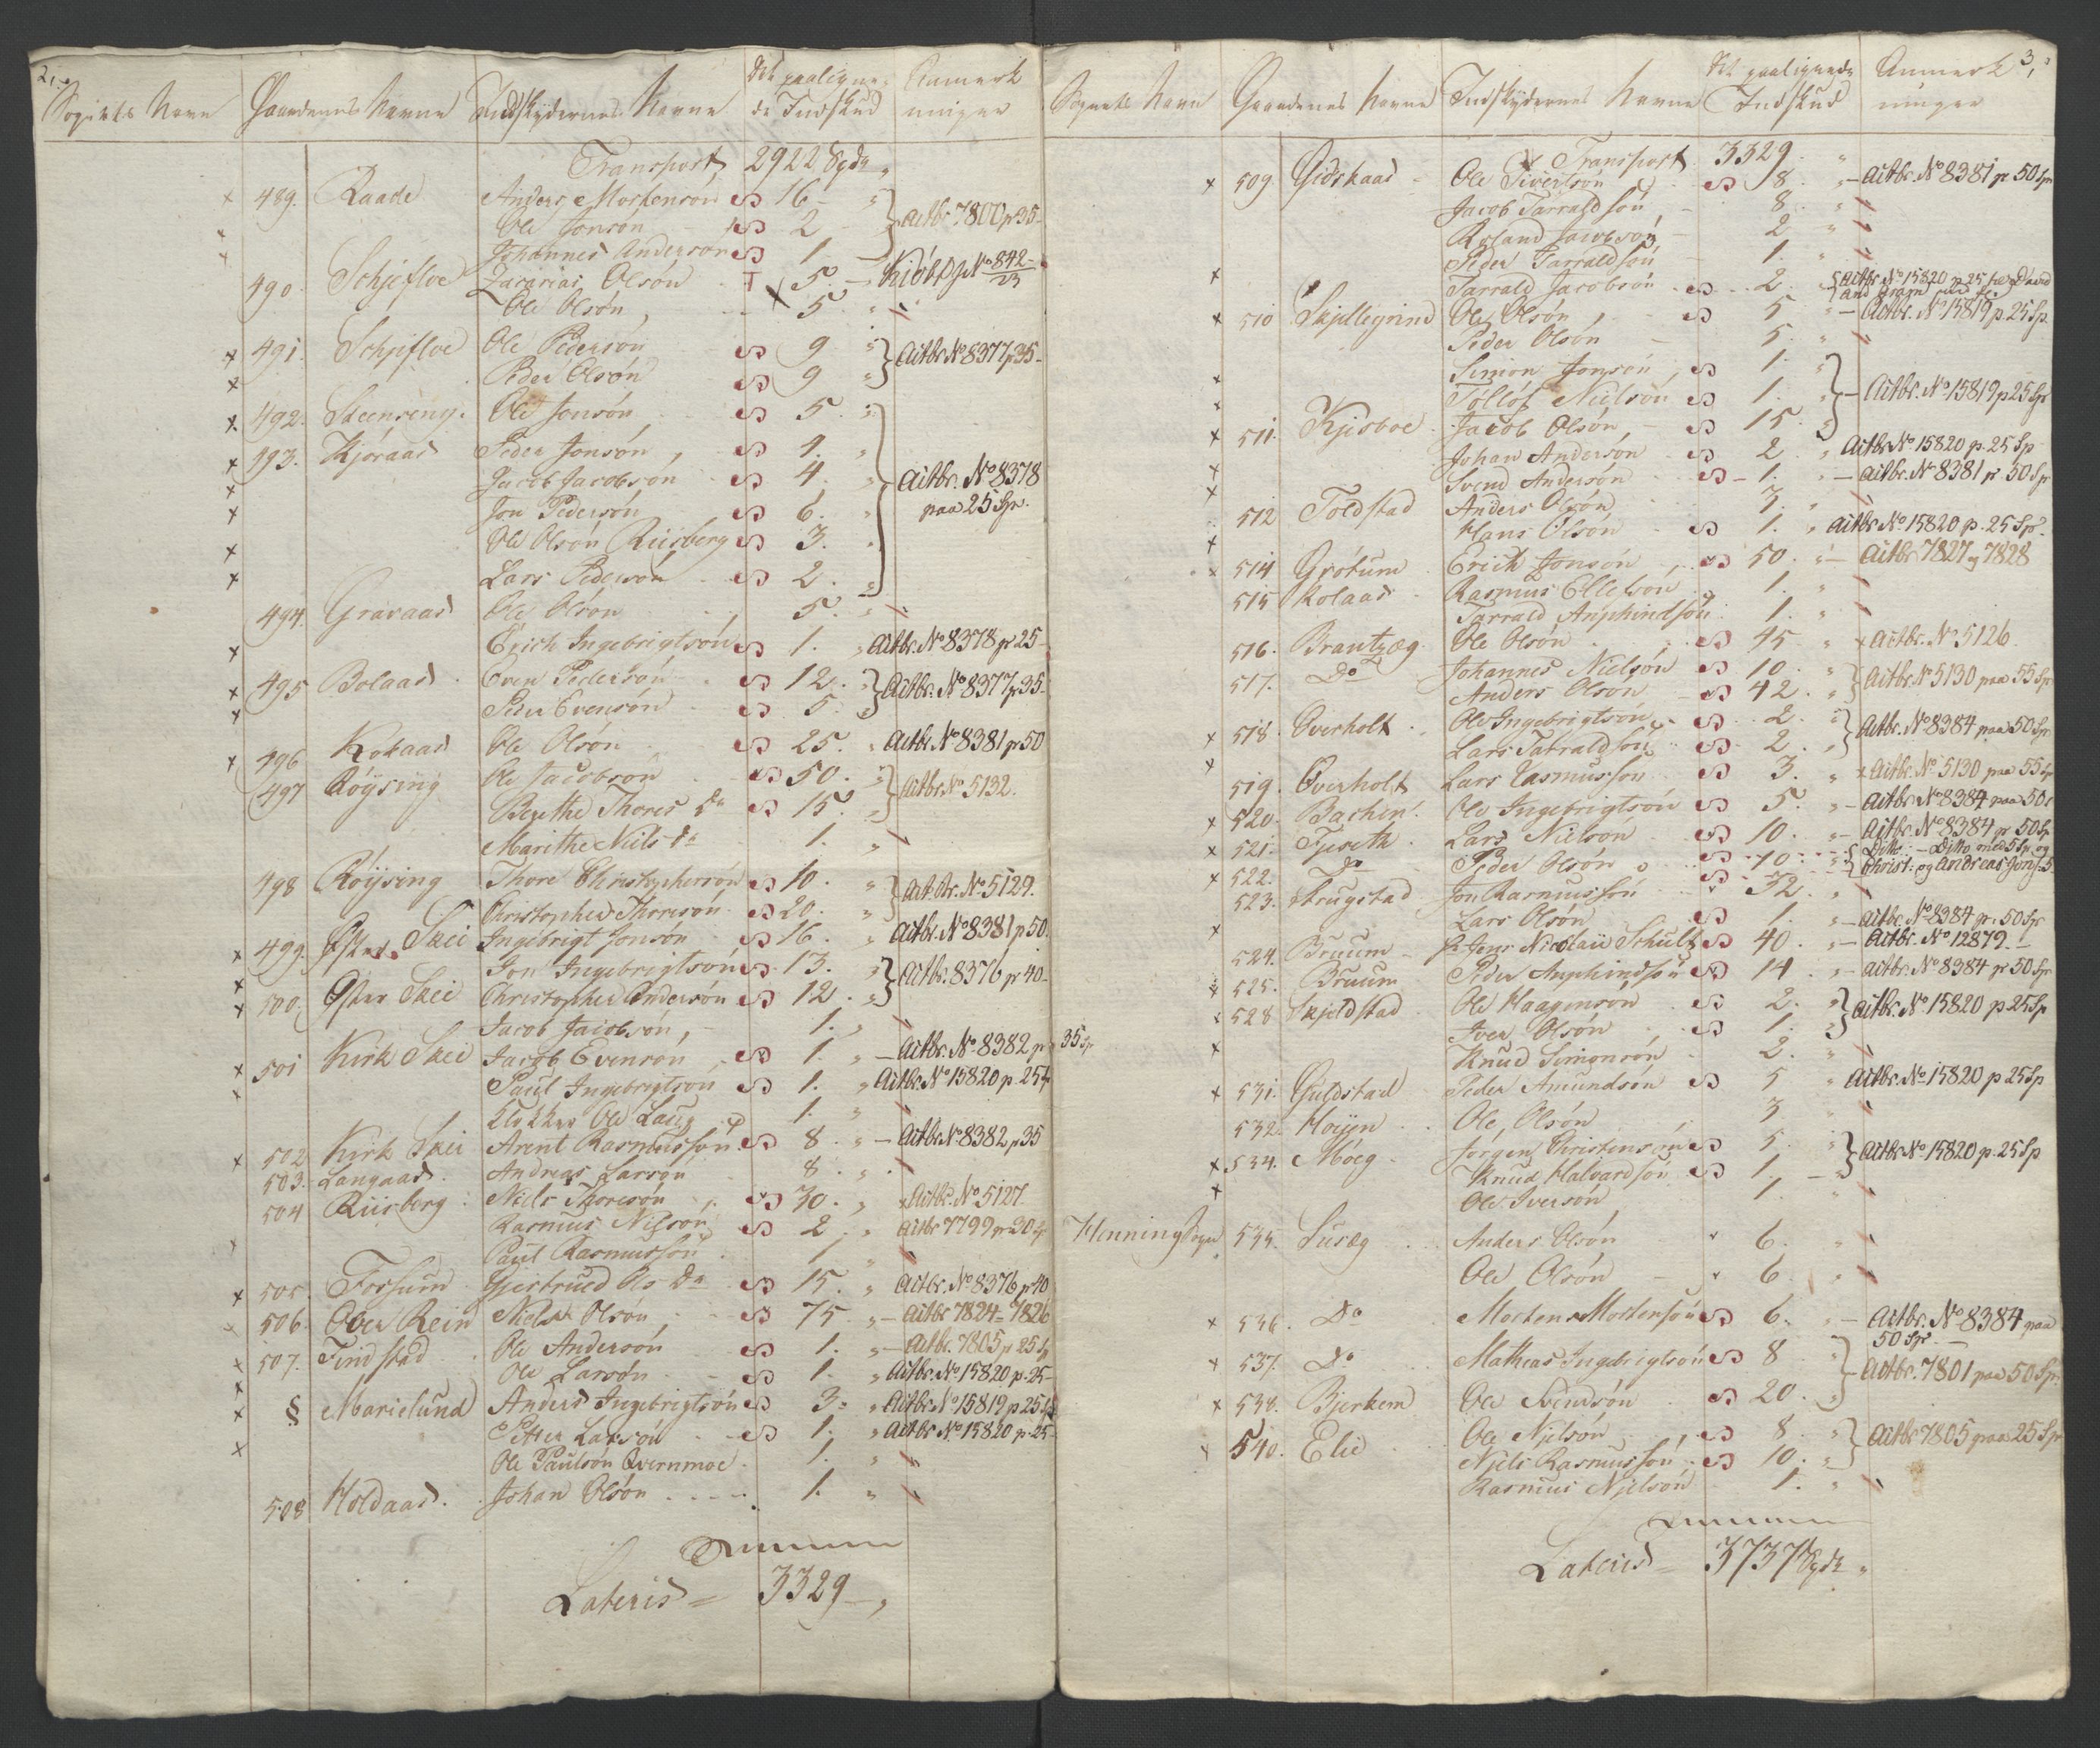 2.
Sognets Navn Gaardenes Navne Indskydernes Navne Det paaligne- Anmærk
de Indskud ninger
Transport 2922 Spdr
489. Raade Anders Mortensøn 16 Actbr. 7800 p 25
Ole Jonsøn 2
Johannes Andersøn 1
490. Schjefloe Zacarias Olsøn T 5. Kiøbhj No 842/23
Ole Olsøn 5
491. Schjefloe Ole Pedersøn 9 Actbr. No 8377 p 35
Peder Olsøn 9
492. Steenseng. Ole Jonsøn 5.
493. Kjøraas Peder Jonsøn 4.
Jacob Jacobsøn 4. Actbr. No 8378
Jon Pedersøn 6. paa 25 Spr.
Ole Olsøn Riisberg 3.
Lars Pedersøn 2.
494. Gravaas Ole Olsøn 5.
Erich Ingebrigtsøn 1. Actbr. No 8378 pr 25
495 Bolaas Even Pedersøn 12. Actbr. No 8377 p 35
Peder Evensøn 5
496 Kokaas Ole Olsøn 25. Actbr. No 8381 pr 50
497 Røysing Ole Jacobsøn 50. Actbr. No 5132.
Berethe Thores Dr 15.
Marithe Niels Dr 1.
498 Røysing Thore Christophersøn 10. Actbr. No 5129.
Christopher Thoresøn 20.
499. Øster Skei Ingebrigt Jonsøn 16. Actbr. No 8381 p 50.
Jon Ingebrigtsøn 13. Actbr. 8376 pr 40
500. Øster Skei Christopher Andersøn 12.
Jacob Jacobsøn 1.
501 Kirk Skei Jacob Evensøn 1. Actbr. No 8382 p 35 Sp
Paul Ingebrigtsøn 1. Actbr. No 15820 p. 25 Sp
Klokker Ole Laug 1.
502 Kirk Skei Arent Rasmussøn 8. Actbr. No 8382 p 35
503. Langaas. Andreas Larsøn 8.
504 Riisberg Niels Thoresøn 30. Actbr. No 5127.
Rasmus Nilsøn 2 Actbr 7799 pr 30 Sp
Paul Rasmussøn 1
505. Forsum Gjertrued Ols Dr 15. Actbr. No 8376 p 40
506. Over Rein Niels Olsøn 75. Actbr 7824 = 7826
507. Findstad Ole Andersøn 1. Actbr. 7805 p 25 Sp
Ole Larsøn 1. Actbr. No 15820 p. 25
§ Marielund Anders Ingebrigtsøn 3. Actbr. No 15819 p 25 Sp
Petter Larsøn 1. Actbr No 15820 p. 25
Ole Paulsøn Qvernmoe 1.
508 Holdaas. Johan Olsøn 1.
Lateris = 3329
3,
Sognets Navn Gaardenes Navne Indskydernes Navne Det paalignede Anmærk
Indskud ninger
Transport 3329
509 Gidskaas Ole Sivertsøn 8. Actbr. No 8381 pr 50 Spr
Jacob Tarraldsøn 8.
Roland Jacobsøn 2
Peder Tarraldsøn 1.
Tarrald Jacobsøn 2. Actbr. No 15820 p 25
510 Skjellegrind Ole Olsøn 5 Actbr. No 15819 p. 25 Sp.
Peder Olsøn 5.
Simon Jonsøn 1.
Tolløf Nielsøn 1. Actbr. No 15819 p 25 Sp
511. Kjesboe Jacob Olsøn 15.
Johan Andersøn 2. Actbr No 15820 p. 25 Sp
Svend Andersøn 1. Actbr. No 8381 pr 50 Sp
512 Foldstad Anders Olsøn 3.
Hans Olsøn 1. Actbr No 15820 p. 25 Sp.
514 Grøtum Erich Jonsøn 50. Actbr 7827 og 7828
515 Kolaas Rasmus Ellefsøn 1.
Tarrald Anphindsøn 1.
516. Brantzæg Ole Olsøn 45 Actbr. No 5126
517. Do Johannes Nielsøn 10. Actbr. No 5130 paa 55 Sp
Anders Olsøn 42.
518. Overholt Ole Ingebrigtsøn 2. Actbr. No 8384 paa 50 Sp
Lars Tarraldsøn 2.
519. Overholt Lars Rasmussøn 3. Actbr. No 5130 paa 55 Sp
520. Bachen Ole Ingebrigtsøn 5. Actbr. No 8384 paa 50
521. Tjereth Lars Nielsøn 10. Actbr. No 8384 pr 50 Sp
522. Do Peder Olsøn 10. Ditto Ditto med 5 Sp og
Christ: og Andreas Jons: 5
523. Trugstad Jon Rasmussøn 32.
Lars Olsøn 1. Actbr. No 8384 pr. 50 Spr
524. Bruum Hr Jens Nicolaii Schult 40. Actbr. No 12879
525. Bruum Peder Anphindsøn 14. Actbr. No 8384 pr 50 Spr
528 Skjeldstad Ole Haagensøn 2. Actbr. No 15820 p 25 Sp
Iver Olsøn 1.
Knud Simonsøn 2.
531. Guldstad Peder Amundsøn 5 Actbr. No 15820 p 25 Sp
532. Høyen Ole Olsøn 3.
534. Møeg Jørgen Christensøn 5. Actbr No 15820 p. 25 Sp
Knud Halvardsøn 1.
Ole Iversøn 1.
Henning Sogn 535. Lusæg Anders Olsøn 6.
Ole Olsøn 6.
536. Do Morten Mortensøn 6. Actbr. No 8384 paa
50 Spr.
537. Do Mathias Ingebrigtsøn 8 Actbr. 7801 paa 50 Sp
538. Bjerkem Ole Svendsøn 20.
540. Elie Ole Nielsøn 8. Actbr 7805 paa 25 Sp
Niels Rasmussøn 10.
Rasmus Nielsøn 1.
Lateris = 3737 Spdr